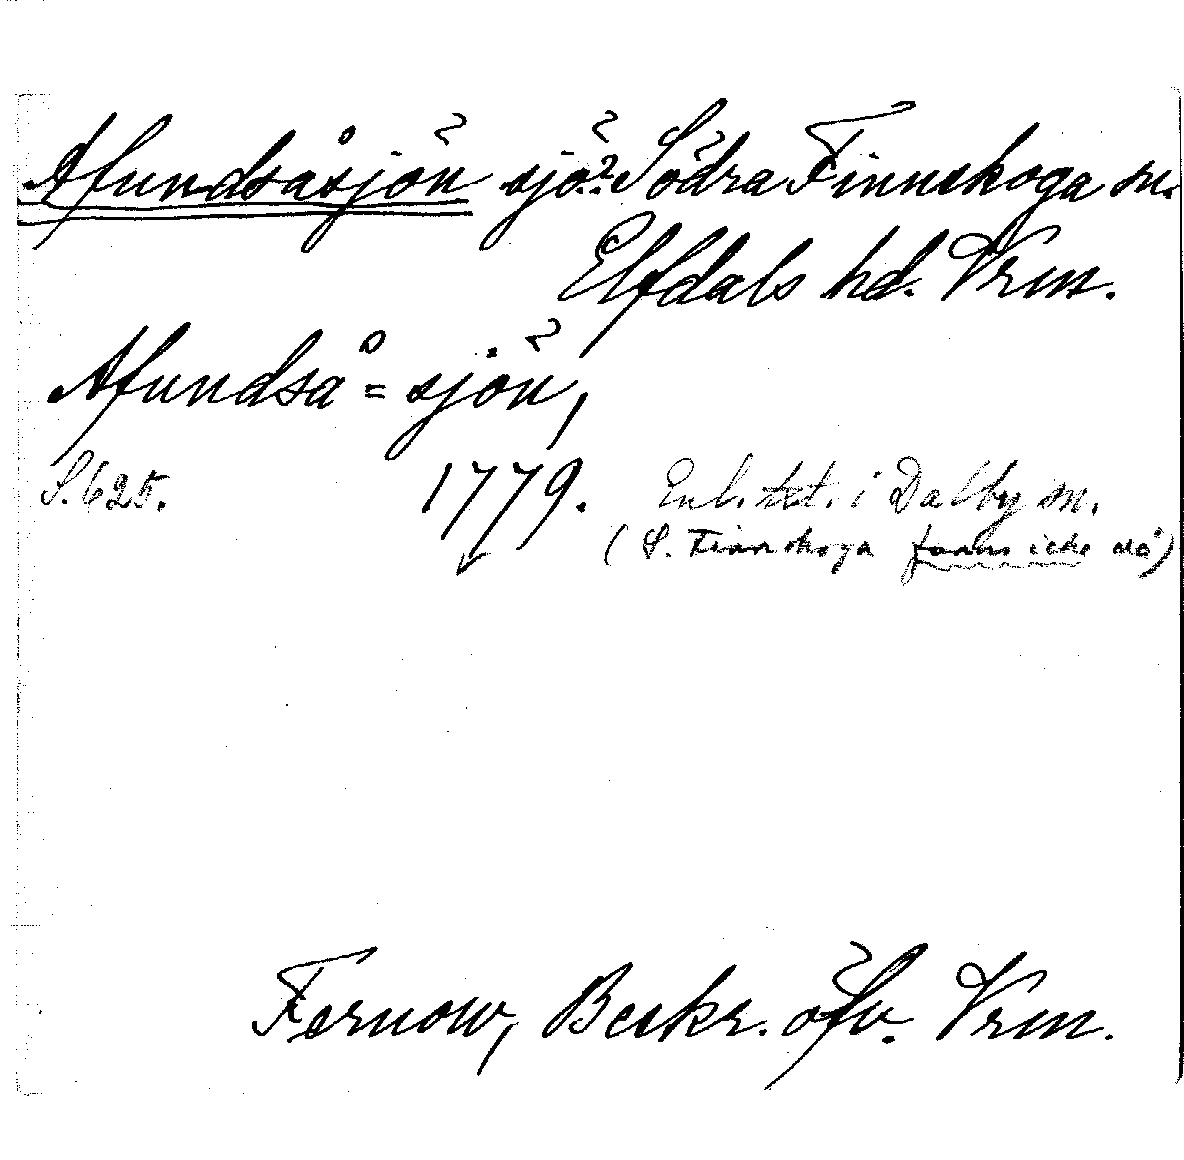 Afundsåsjön sjö? Södra Finnskoga sn.
Elfdals hd. Vrm.
Afundså=sjön,
S. 625. 1779. Enl. txt. i Dalby sn.
(S. Finnskoga fanns icke då)
Fernow, Beskr. öfv. Vrm.